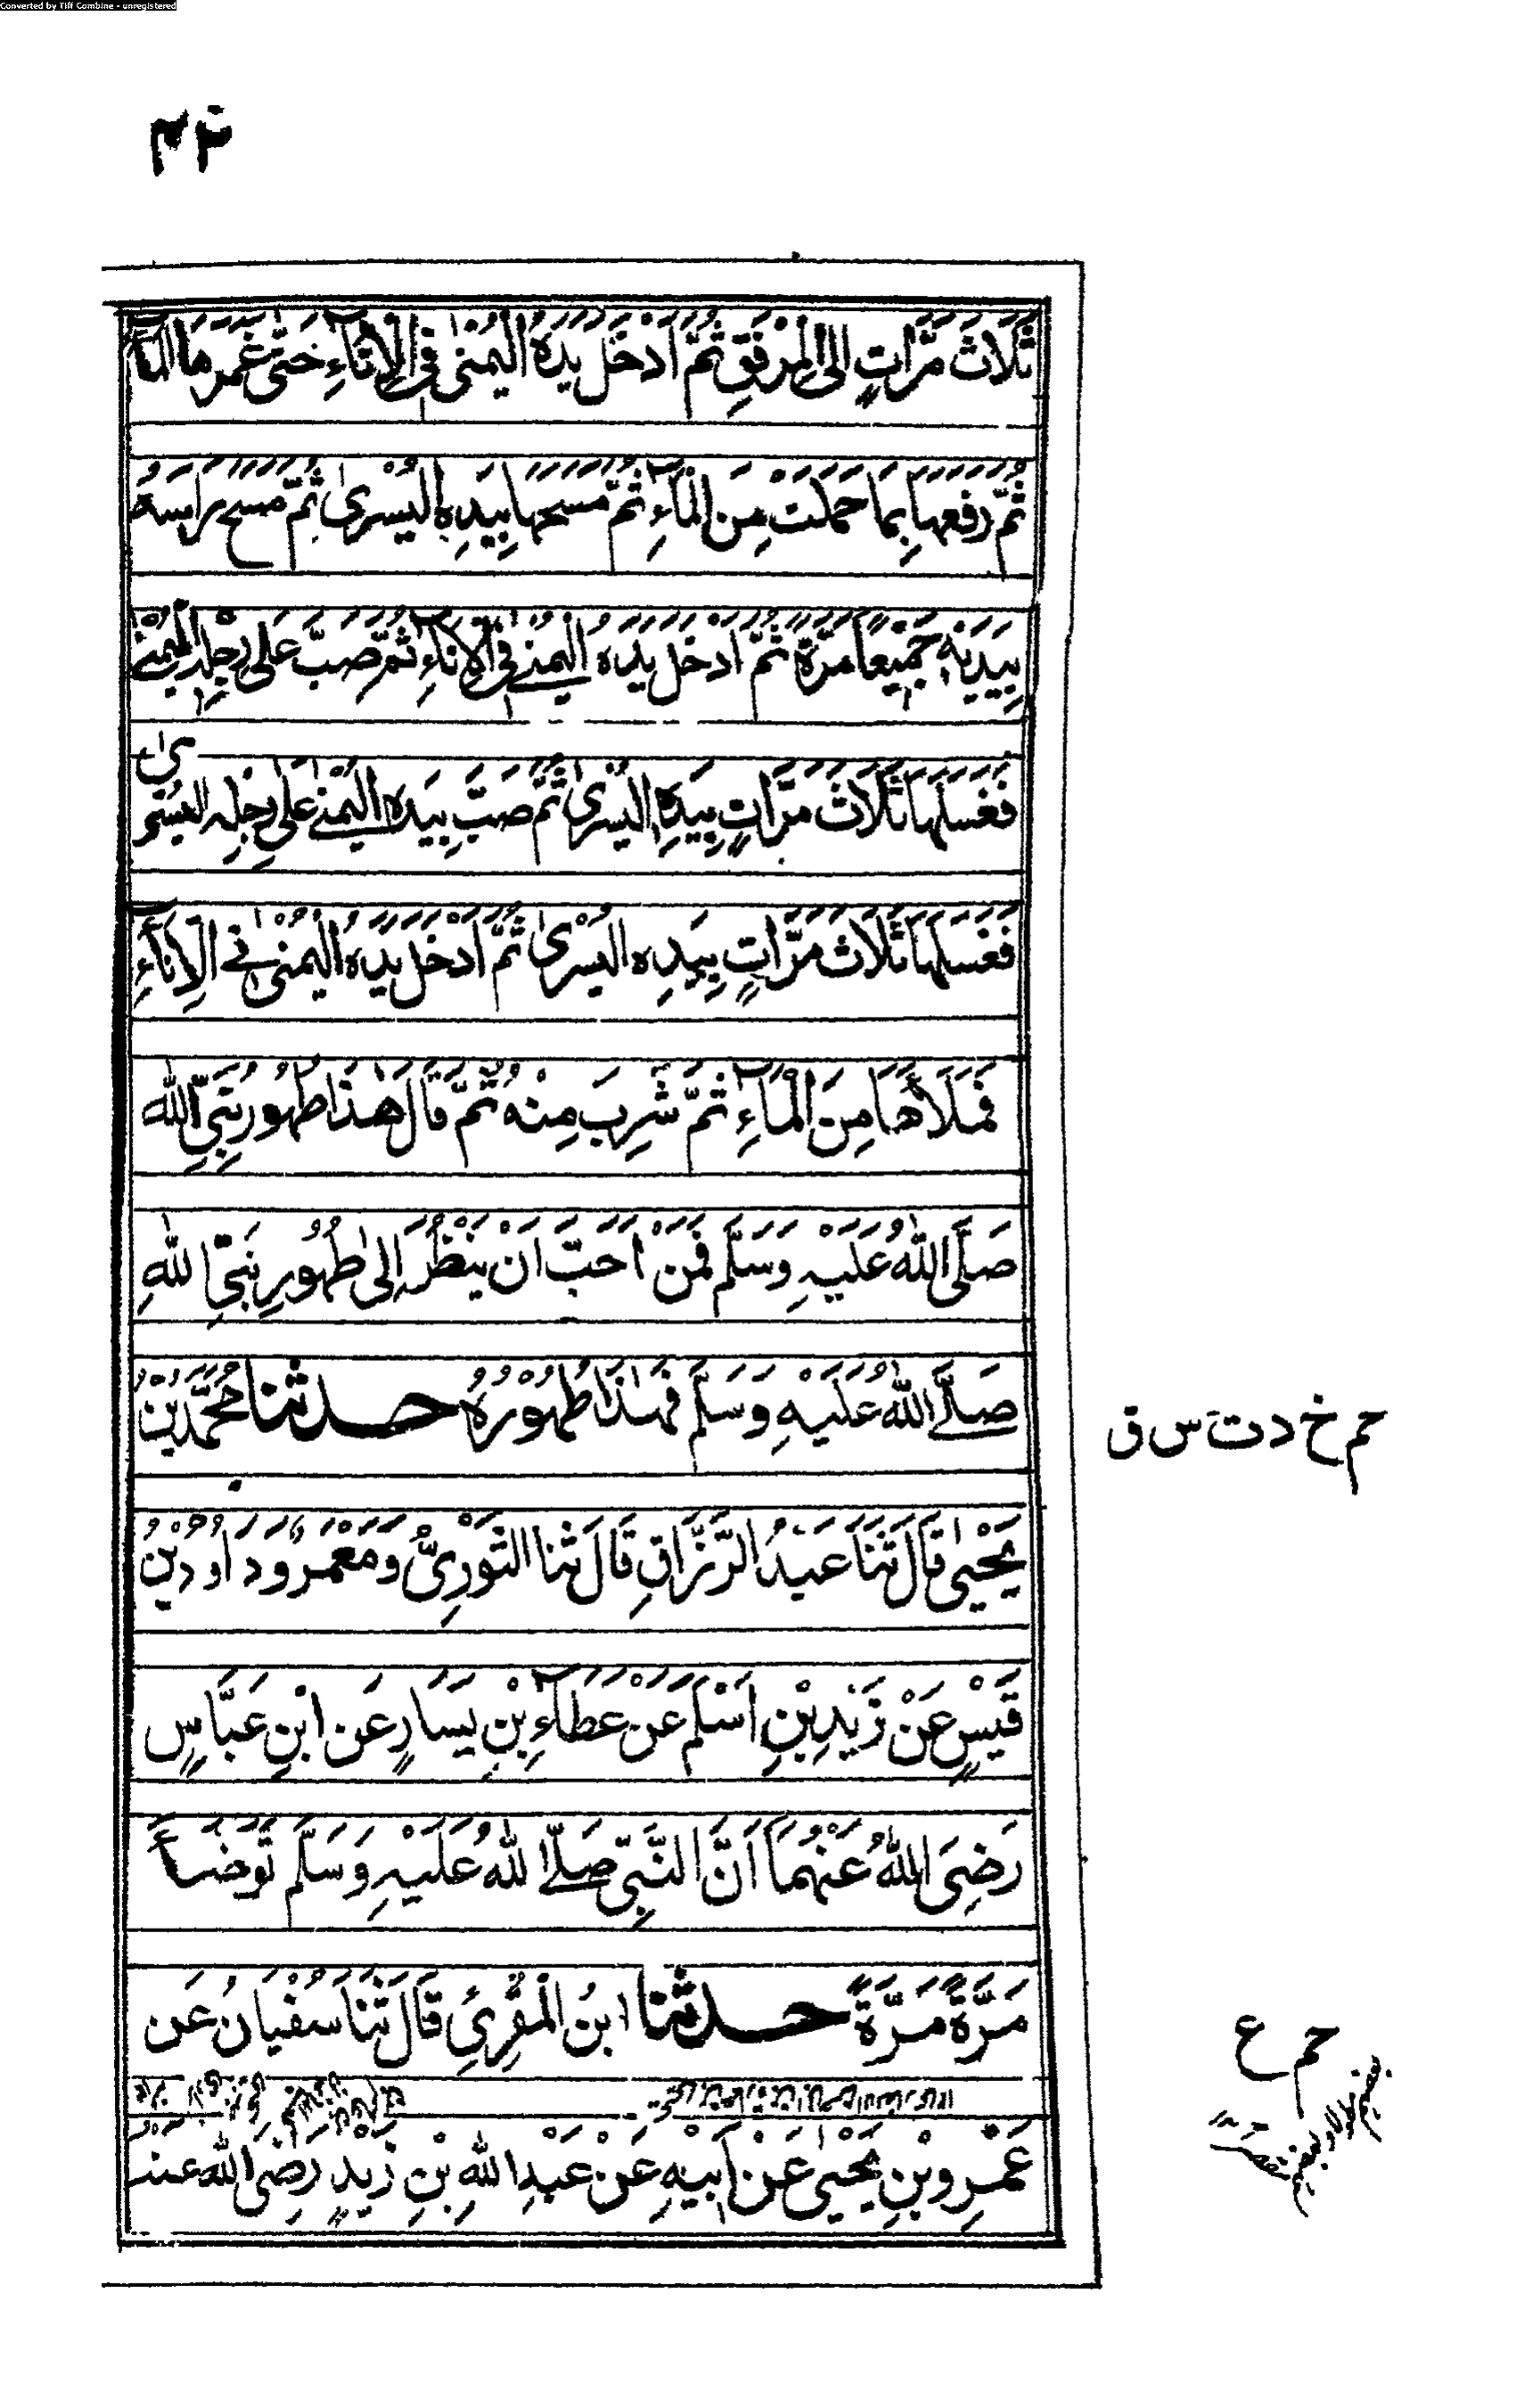 Converted by Tiff Combine - unregistered
ثَلَاثَ مَرَّاتٍ اِلَى الْمِرْفَقِ ثُمَّ اَدْخَلَ يَدَهُ الْيُمْنٰى فِى الْاِنَآءِ حَتّٰى غَمَرَهَا الْمَآءُ
ثُمَّ رَفَعَهَا بِمَا حَمَلَتْ مِنَ الْمَآءِ ثُمَّ مَسَحَهَا بِيَدِهِ الْيُسْرٰى ثُمَّ مَسَحَ رَاسَهُ
بِيَدَيْهِ جَمِيْعًا مَرَّةً ثُمَّ اَدْخَلَ يَدَهُ الْيُمْنٰے فِى الْاِنَآءِ ثُمَّ صَبَّ عَلٰى رِجْلِهِ الْيُمْنٰے
فَغَسَلَهَا ثَلَاثَ مَرَّاتٍ بِيَدِهِ الْيُسْرٰى ثُمَّ صَبَّ بِيَدِهِ الْيُمْنٰے عَلٰى رِجْلِهِ الْيُسْرٰى
فَغَسَلَهَا ثَلَاثَ مَرَّاتٍ بِيَدِهِ الْيُسْرٰى ثُمَّ اَدْخَلَ يَدَهُ الْيُمْنٰى فِے الْاِنَآءِ
فَمَلَأَهَا مِنَ الْمَآءِ ثُمَّ شَرِبَ مِنْهُ ثُمَّ قَالَ هٰذَا طُهُورُ نَبِيِّ اللّٰهِ
صَلَّى اللّٰهُ عَلَيْهِ وَسَلَّمَ فَمَنْ اَحَبَّ اَنْ يَنْظُرَ اِلٰى طُهُوْرِ نَبِيِّ اللّٰهِ
صَلَّے اللّٰهُ عَلَيْهِ وَسَلَّمَ فَهٰذَا طُهُوْرُهُ حدثنا مُحَمَّدُ بْنُ
حم خ د ت س ق
يَحْيٰى قَالَ ثَنَا عَبْدُ الرَّزَّاقِ قَالَ ثَنَا الثَّوْرِىُّ وَمَعْمَرٌ وَدَاوُدُ بْنُ
قَيْسٍ عَنْ زَيْدِ بْنِ اَسْلَمَ عَنْ عَطَآءِ بْنِ يَسَارٍ عَنِ ابْنِ عَبَّاسٍ
رَضِىَ اللّٰهُ عَنْهُمَا اَنَّ النَّبِيَّ صَلَّے اللّٰهُ عَلَيْهِ وَسَلَّمَ تَوَضَّأَ
مَرَّةً مَرَّةً حدثنا ابْنُ الْمُقْرِئِ قَالَ ثَنَا سُفْيَانُ عَنْ
حم ع
عَمْرِو بْنِ يَحْيٰى عَنْ اَبِيْهِ عَنْ عَبْدِ اللّٰهِ بْنِ زَيْدٍ رَضِىَ اللّٰهُ عَنْهُ